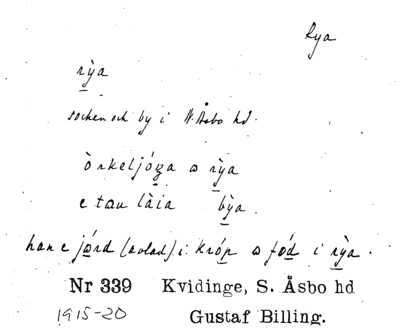 Rya
rỳa
socken och by i N. Åsbo hd.
òrkeljóŋa ɷ rỳa
e tau làia bỳa.
han e jɷ́rd (avlad) i króp ɷ fǿd i rỳa.
Nr 339 Kvidinge, S. Åsbo hd
1915-20 Gustaf Billing.